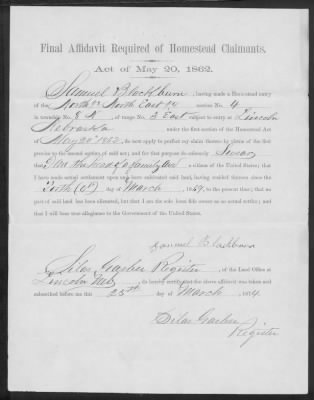 Final Affidavit Required of Homestead Claimants.
Act of May 20, 1862.
I, Samuel Blackburn, having made a Homestead entry
of the North ½ North East ¼ section No. 4
in township No. 8 N of range No. 3 East subject to entry at Lincoln
Nebraska under the first section of the Homestead Act
of May 20th 1862, do now apply to perfect my claim thereto by virtue of the first
proviso to the second section of said act; and for that purpose do solemnly Swear
that I am the head of a family and a citizen of the United States; that
I have made actual settlement upon and have cultivated said land, having resided thereon since
the day of March, 1869, to the present time; that no
part of said land has been alienated, but that I am the sole bona fide owner as an actual settler; and
that I will bear true allegiance to the Government of the United States.
Samuel Blackburn
I, Silas Garber Register, of the Land Office at
Lincoln Neb, do hereby certify that the above affidavit was taken and
subscribed before me this 25th day of March, 1874.
Silas Garber
Register